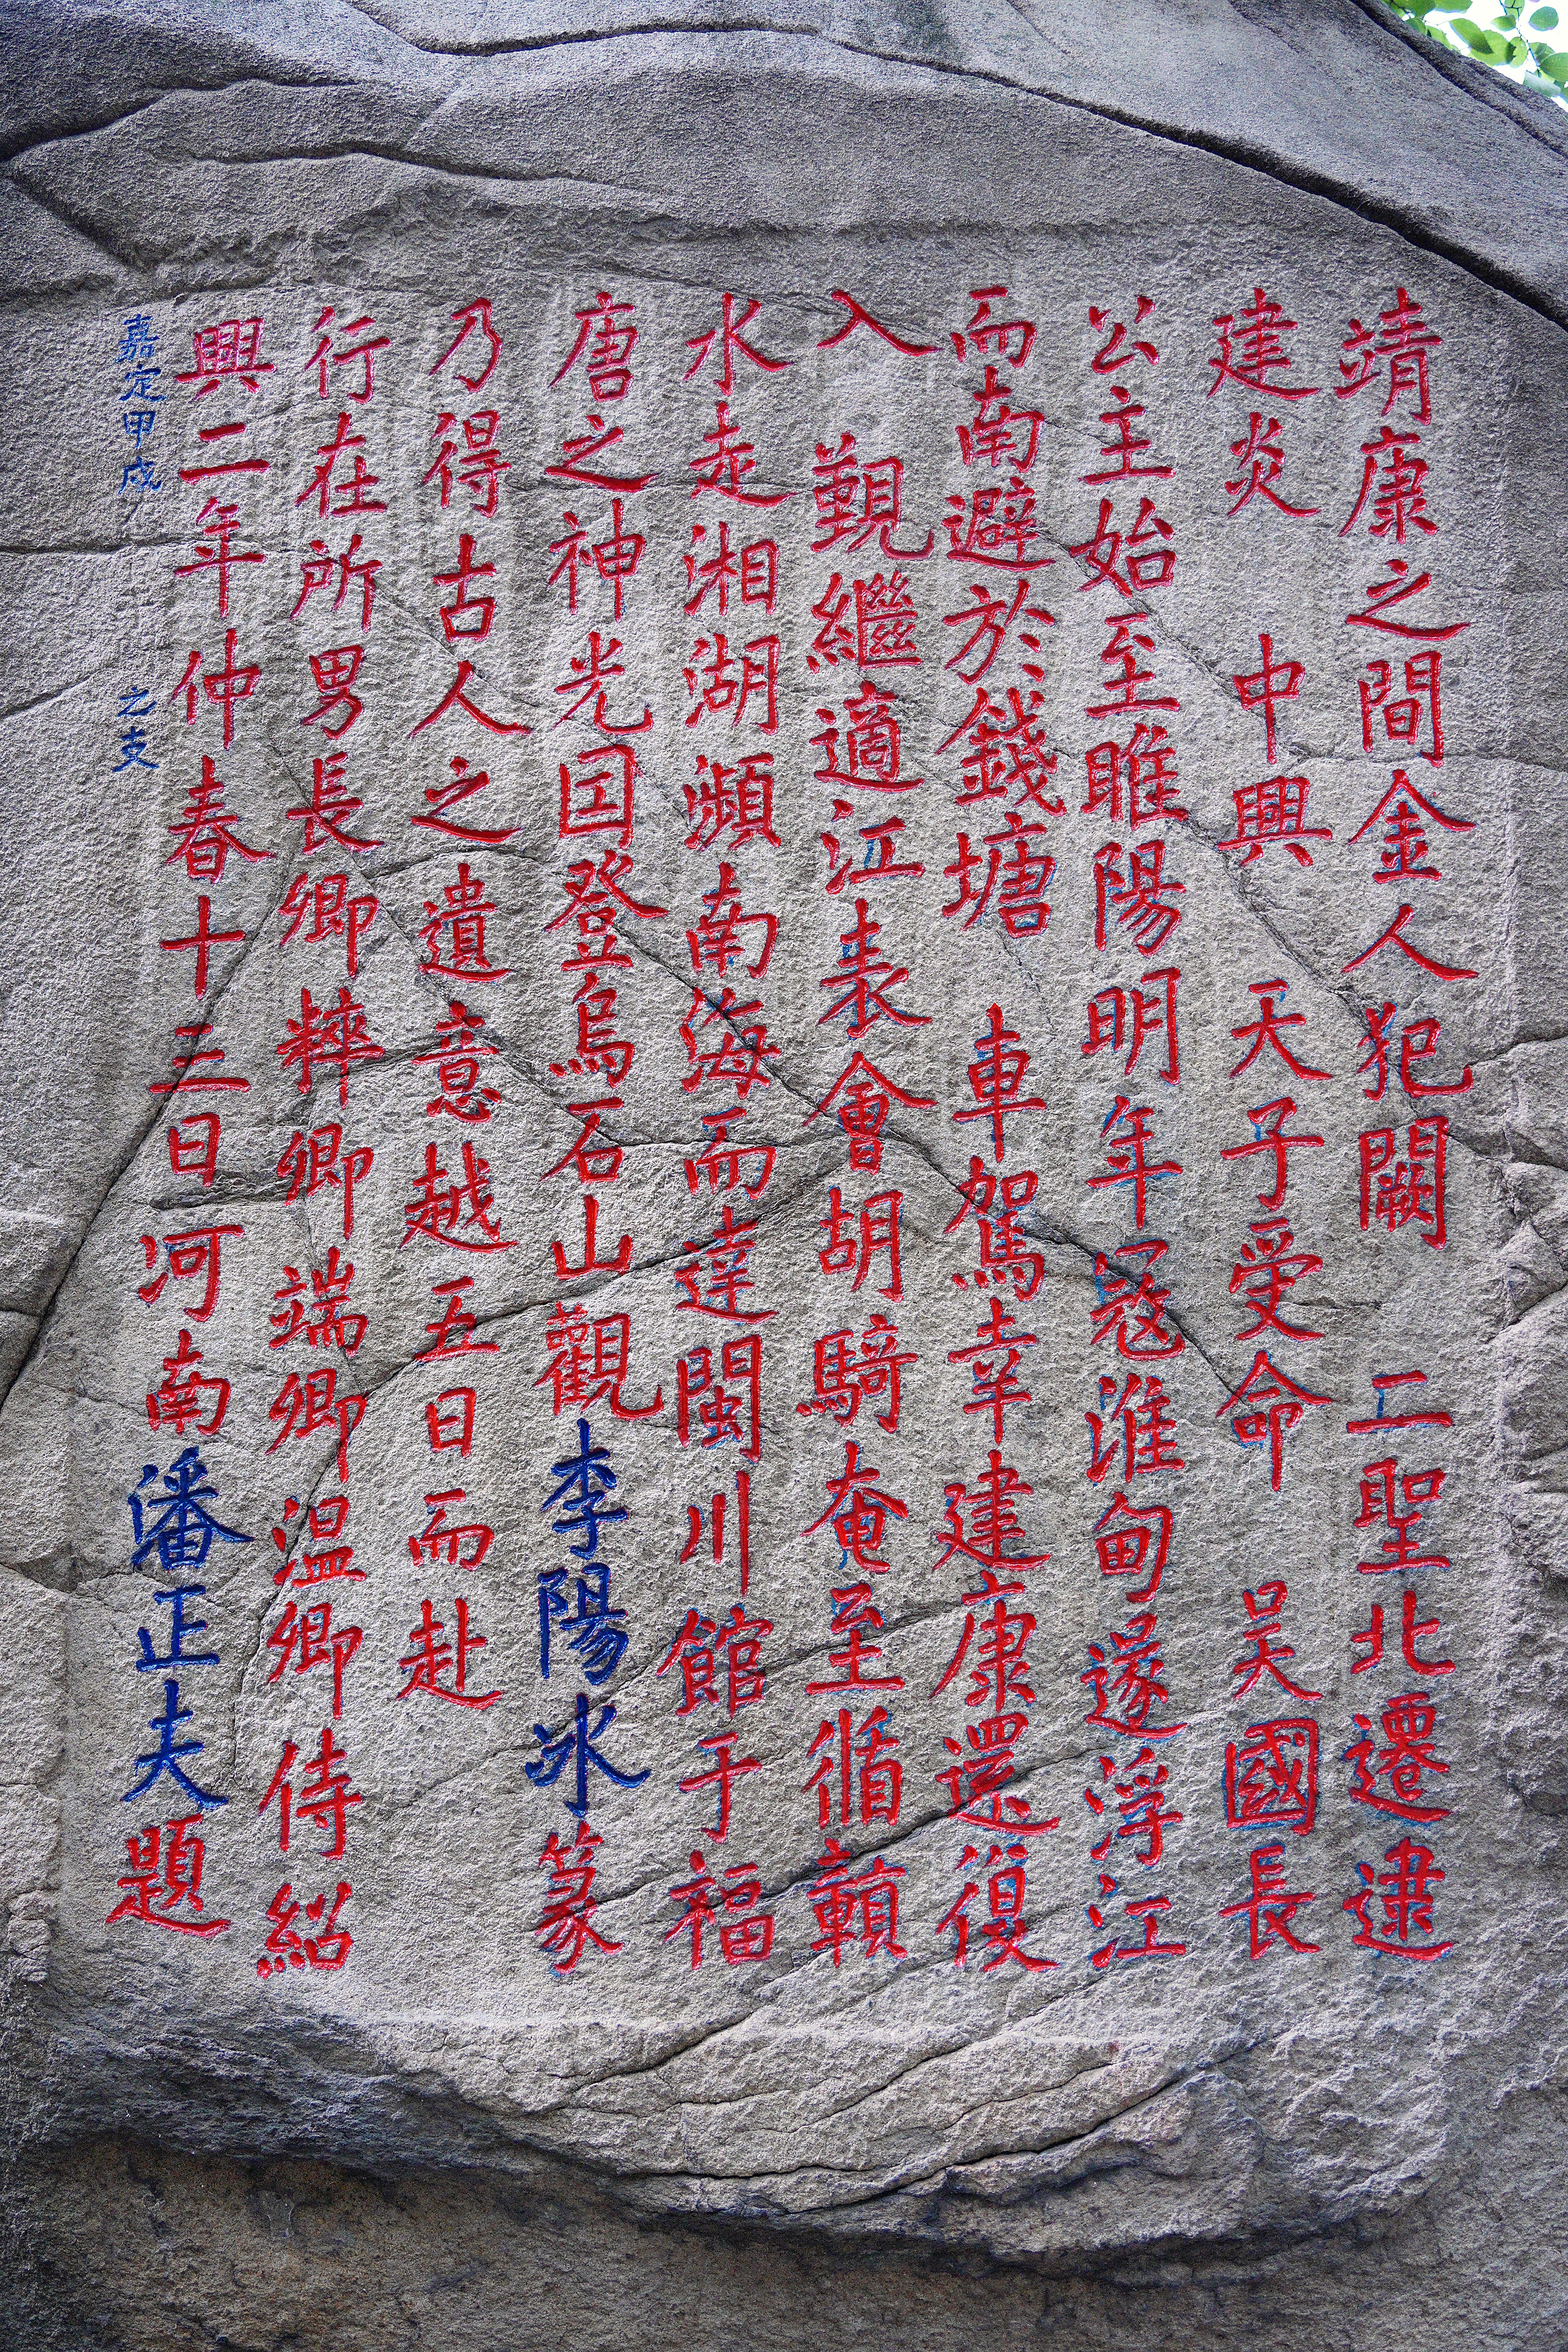 靖康之間金人犯闕 二聖北遷逮
建炎 中興 天子受命 吴國長
公主始至睢陽明年冦淮甸遂浮江
而南避於錢塘 車駕幸建康還復
入 覲繼適江表會胡騎奄至循贑
水走湘湖瀕南海而達閩川館于福
唐之神光国登烏石山觀李陽冰篆
乃得古人之遺意越五日而赴
行在所男長卿粹卿端卿温卿侍紹
興二年仲春十三日河南潘正夫題
嘉定甲戌 之支